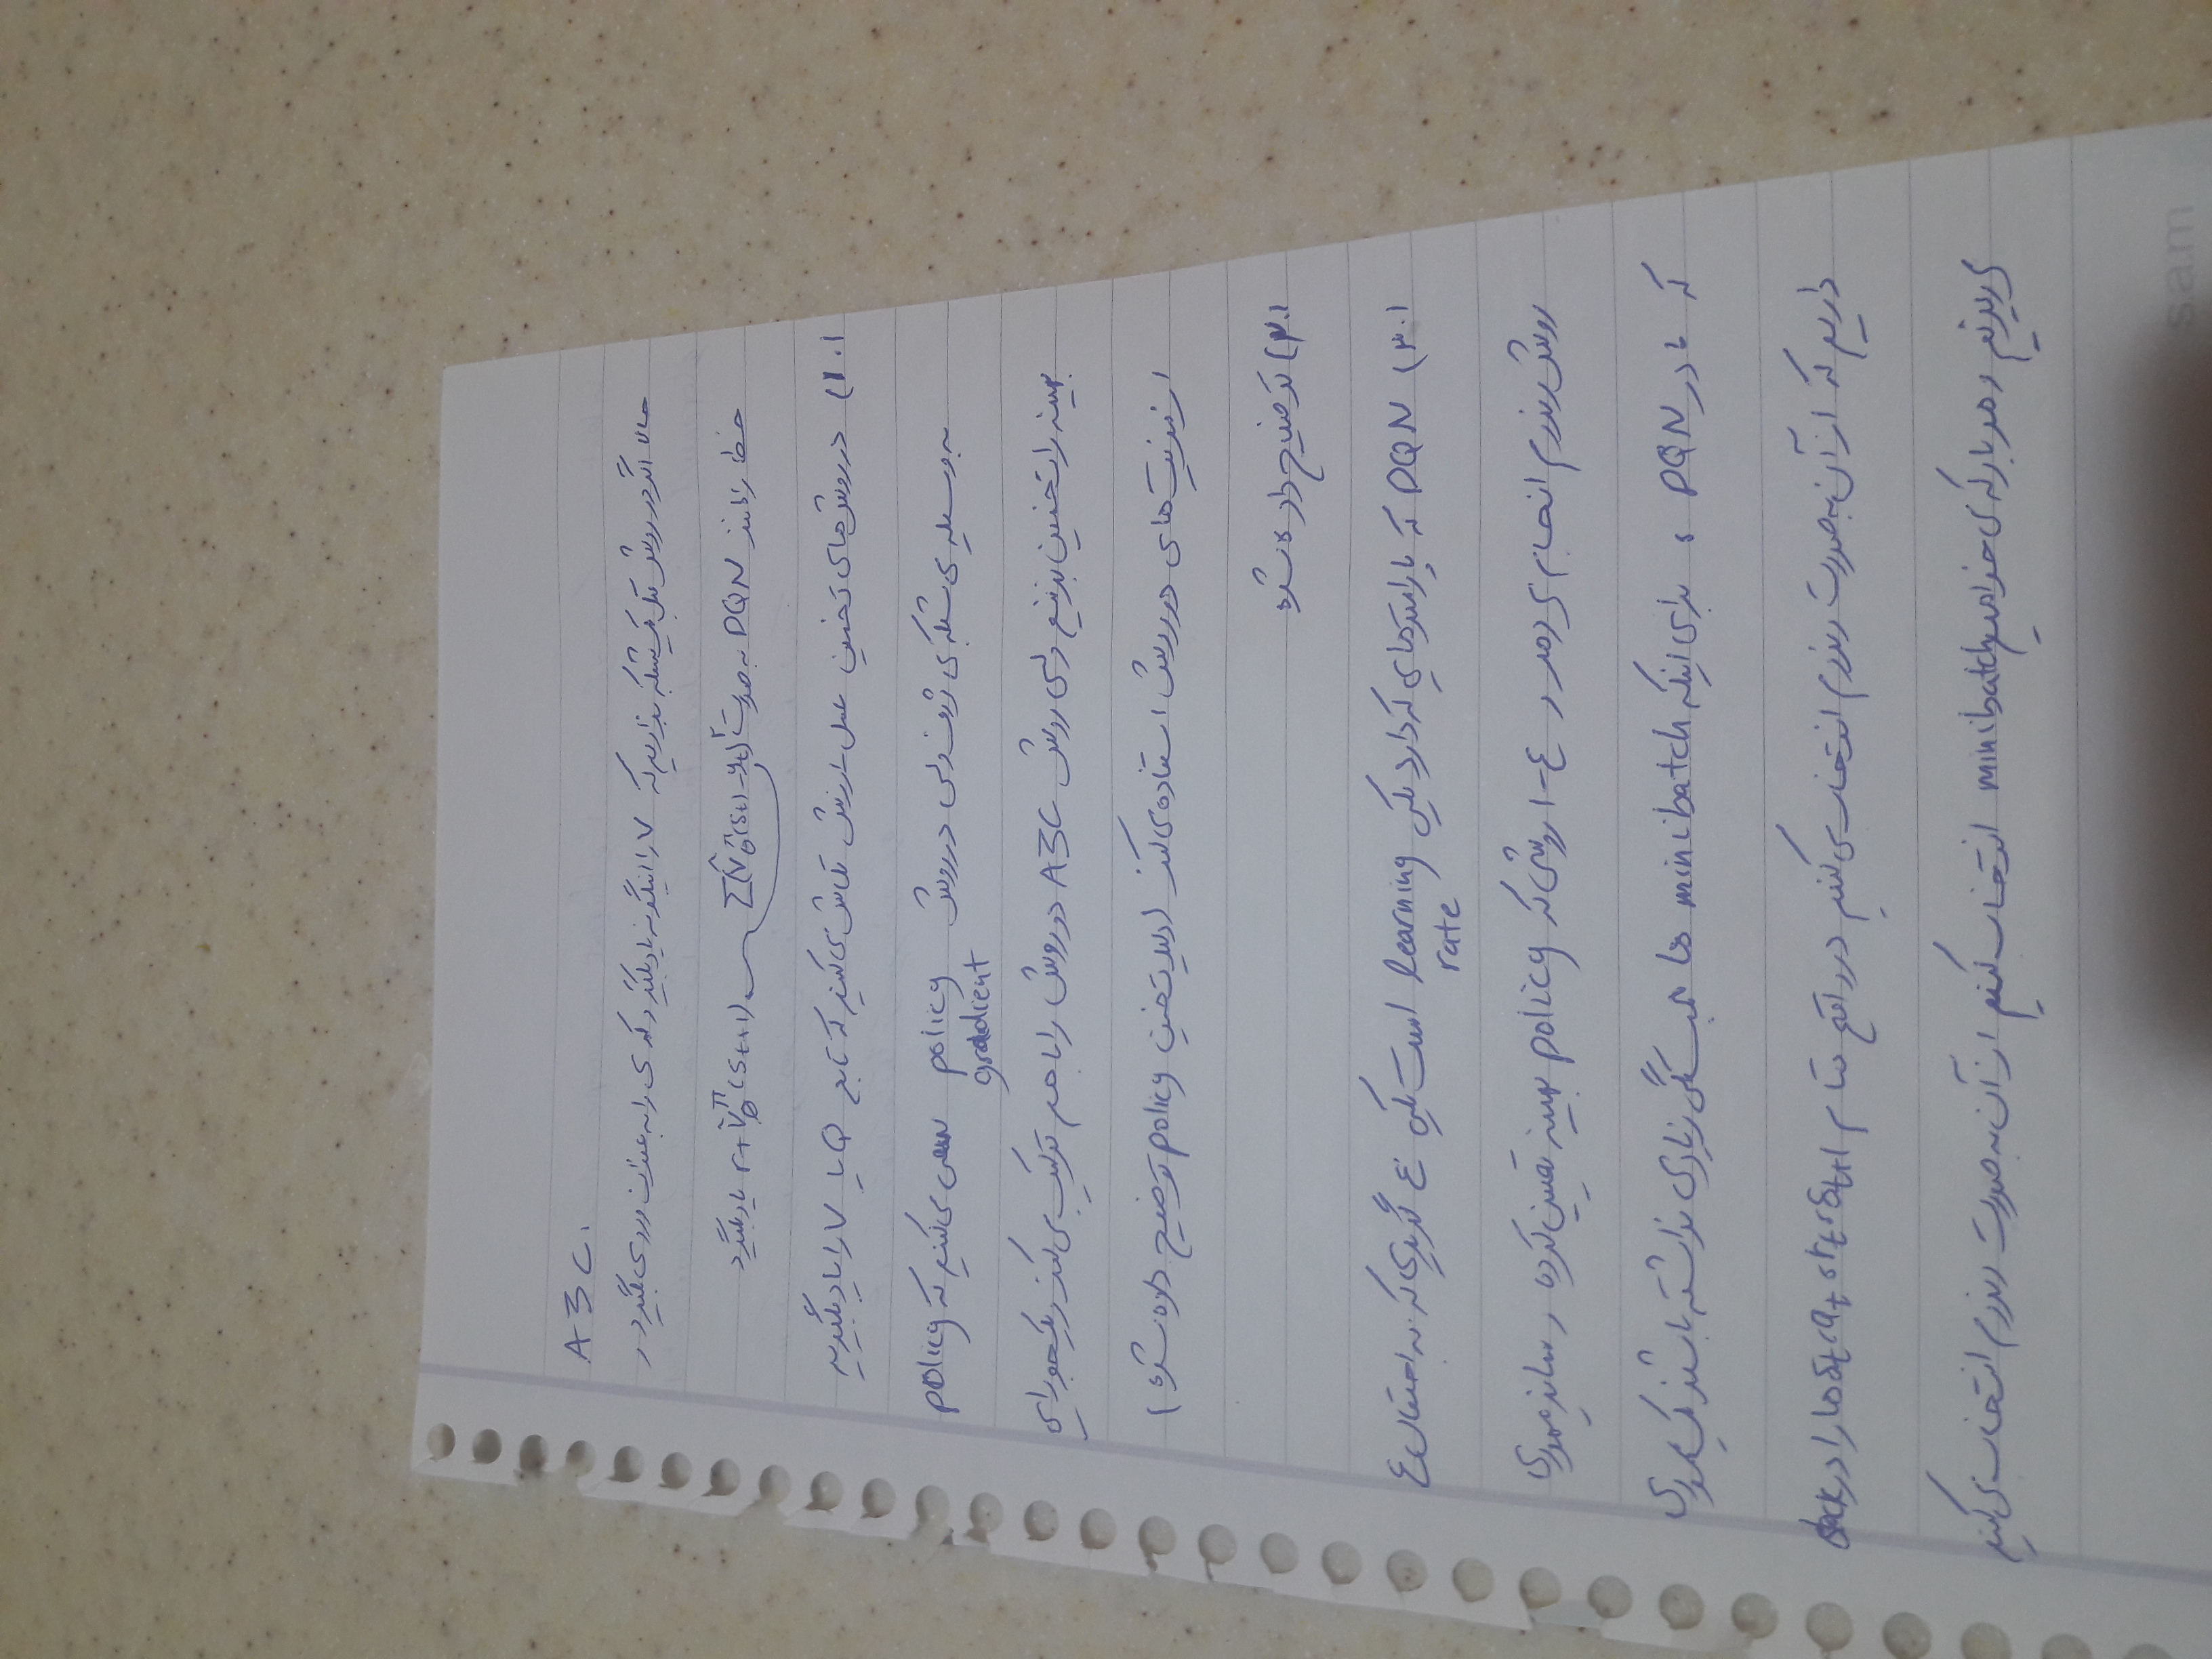 A3C.
حالا اگر در روش قبل یک شبکه بذاریم که V را اینگونه یاد بگیرد که ی را به عنوان ورودی بگیرد و
خطا را مانند DQN به صورت Σ(V̂θ(st)-yt)² r+V̂θ^π(st+1) یاد بگیرد
۱.۱) در روش های تخمین عمل-ارزش تلاش می کنیم که تابع Q یا V را یاد بگیریم
به وسیله ی شبکه ی ژرف ولی در روش policy gradient سعی می کنیم که policy
بهینه را تخمین بزنیم ولی روش A3C دو روش را با هم ترکیب می کند و یکجورایی
از مزیت های دو روش استفاده می کند (دلیل تخمین policy توضیح داده شده)
۲.۱) توضیح داده شده
۳.۱) DQN که پارامترهایی که دارد یکی learning rate است یکی ε گریدی که به احتمال ε
روش رندوم انجام می دهد و ۱-ε روشی که policy بهینه تعیین کرده و سایز مموری
که ما در DQN، برای اینکه minibatch ها همبستگی زیادی نداشته باشند یک مموری
داریم که از آن به صورت رندوم انتخاب می کنیم در واقع تمام st,at,rt,st+1 ها را در
می ریزیم و هر بار که می خواهیم minibatch انتخاب کنیم از آن به صورت رندوم انتخاب می کنیم
s.a.m